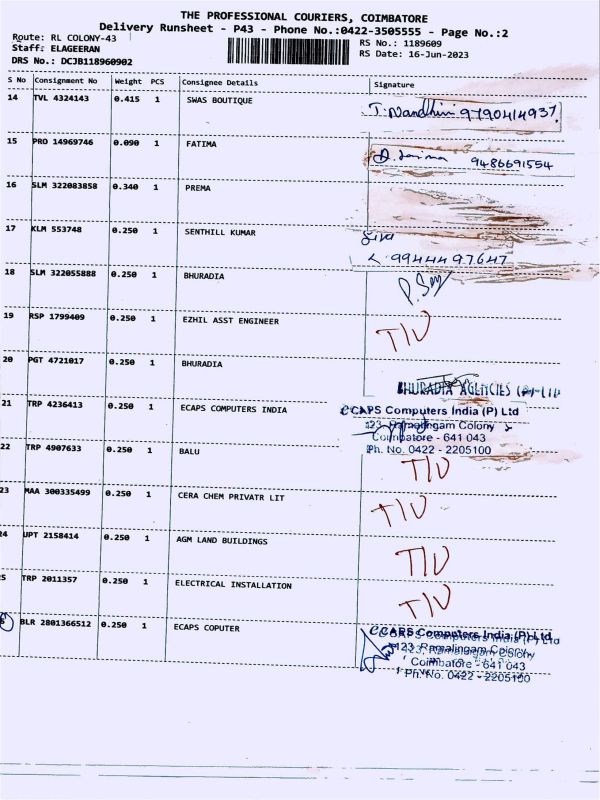 THE PROFESSIONAL COURIERS, COIMBATORE
Delivery Runsheet - P43 - Phone No.:0422-3505555 - Page No.:2
Route: RL COLONY-43
RS No.: 1189609
Staff: ELAGEERAN
RS Date: 16-Jun-2023
DRS No.: DCJB118960902
S No Consignment No Weight PCS Consignee Details Signature
14 TVL 4324143 0.415 1 SWAS BOUTIQUE
T. Nandhini 9790414937
15 PRO 14969746 0.090 1 FATIMA
9486691554
16 SLM 322083858 0.340 1 PREMA
17 KLM 553748 0.250 1 SENTHILL KUMAR
Siva
9944497647
18 SLM 322055888 0.250 1 BHURADIA
19 RSP 1799409 0.250 1 EZHIL ASST ENGINEER
T/U
20 PGT 4721017 0.250 1 BHURADIA
BHURADIA AGENCIES (P) LTD
21 TRP 4236413 0.250 1 ECAPS COMPUTERS INDIA
eCAPS Computers India (P) Ltd
123, Ramalingam Colony
Coimbatore - 641 043
Ph. No. 0422 - 2205100
22 TRP 4907633 0.250 1 BALU
T/U
23 MAA 300335499 0.250 1 CERA CHEM PRIVATR LIT
T/U
24 UPT 2158414 0.250 1 AGM LAND BUILDINGS
T/U
25 TRP 2011357 0.250 1 ELECTRICAL INSTALLATION
T/U
BLR 2801366512 0.250 1 ECAPS COPUTER
eCAPS Computers India (P) Ltd
123, Ramalingam Colony
Coimbatore - 641 043
Ph. No. 0422 - 2205100